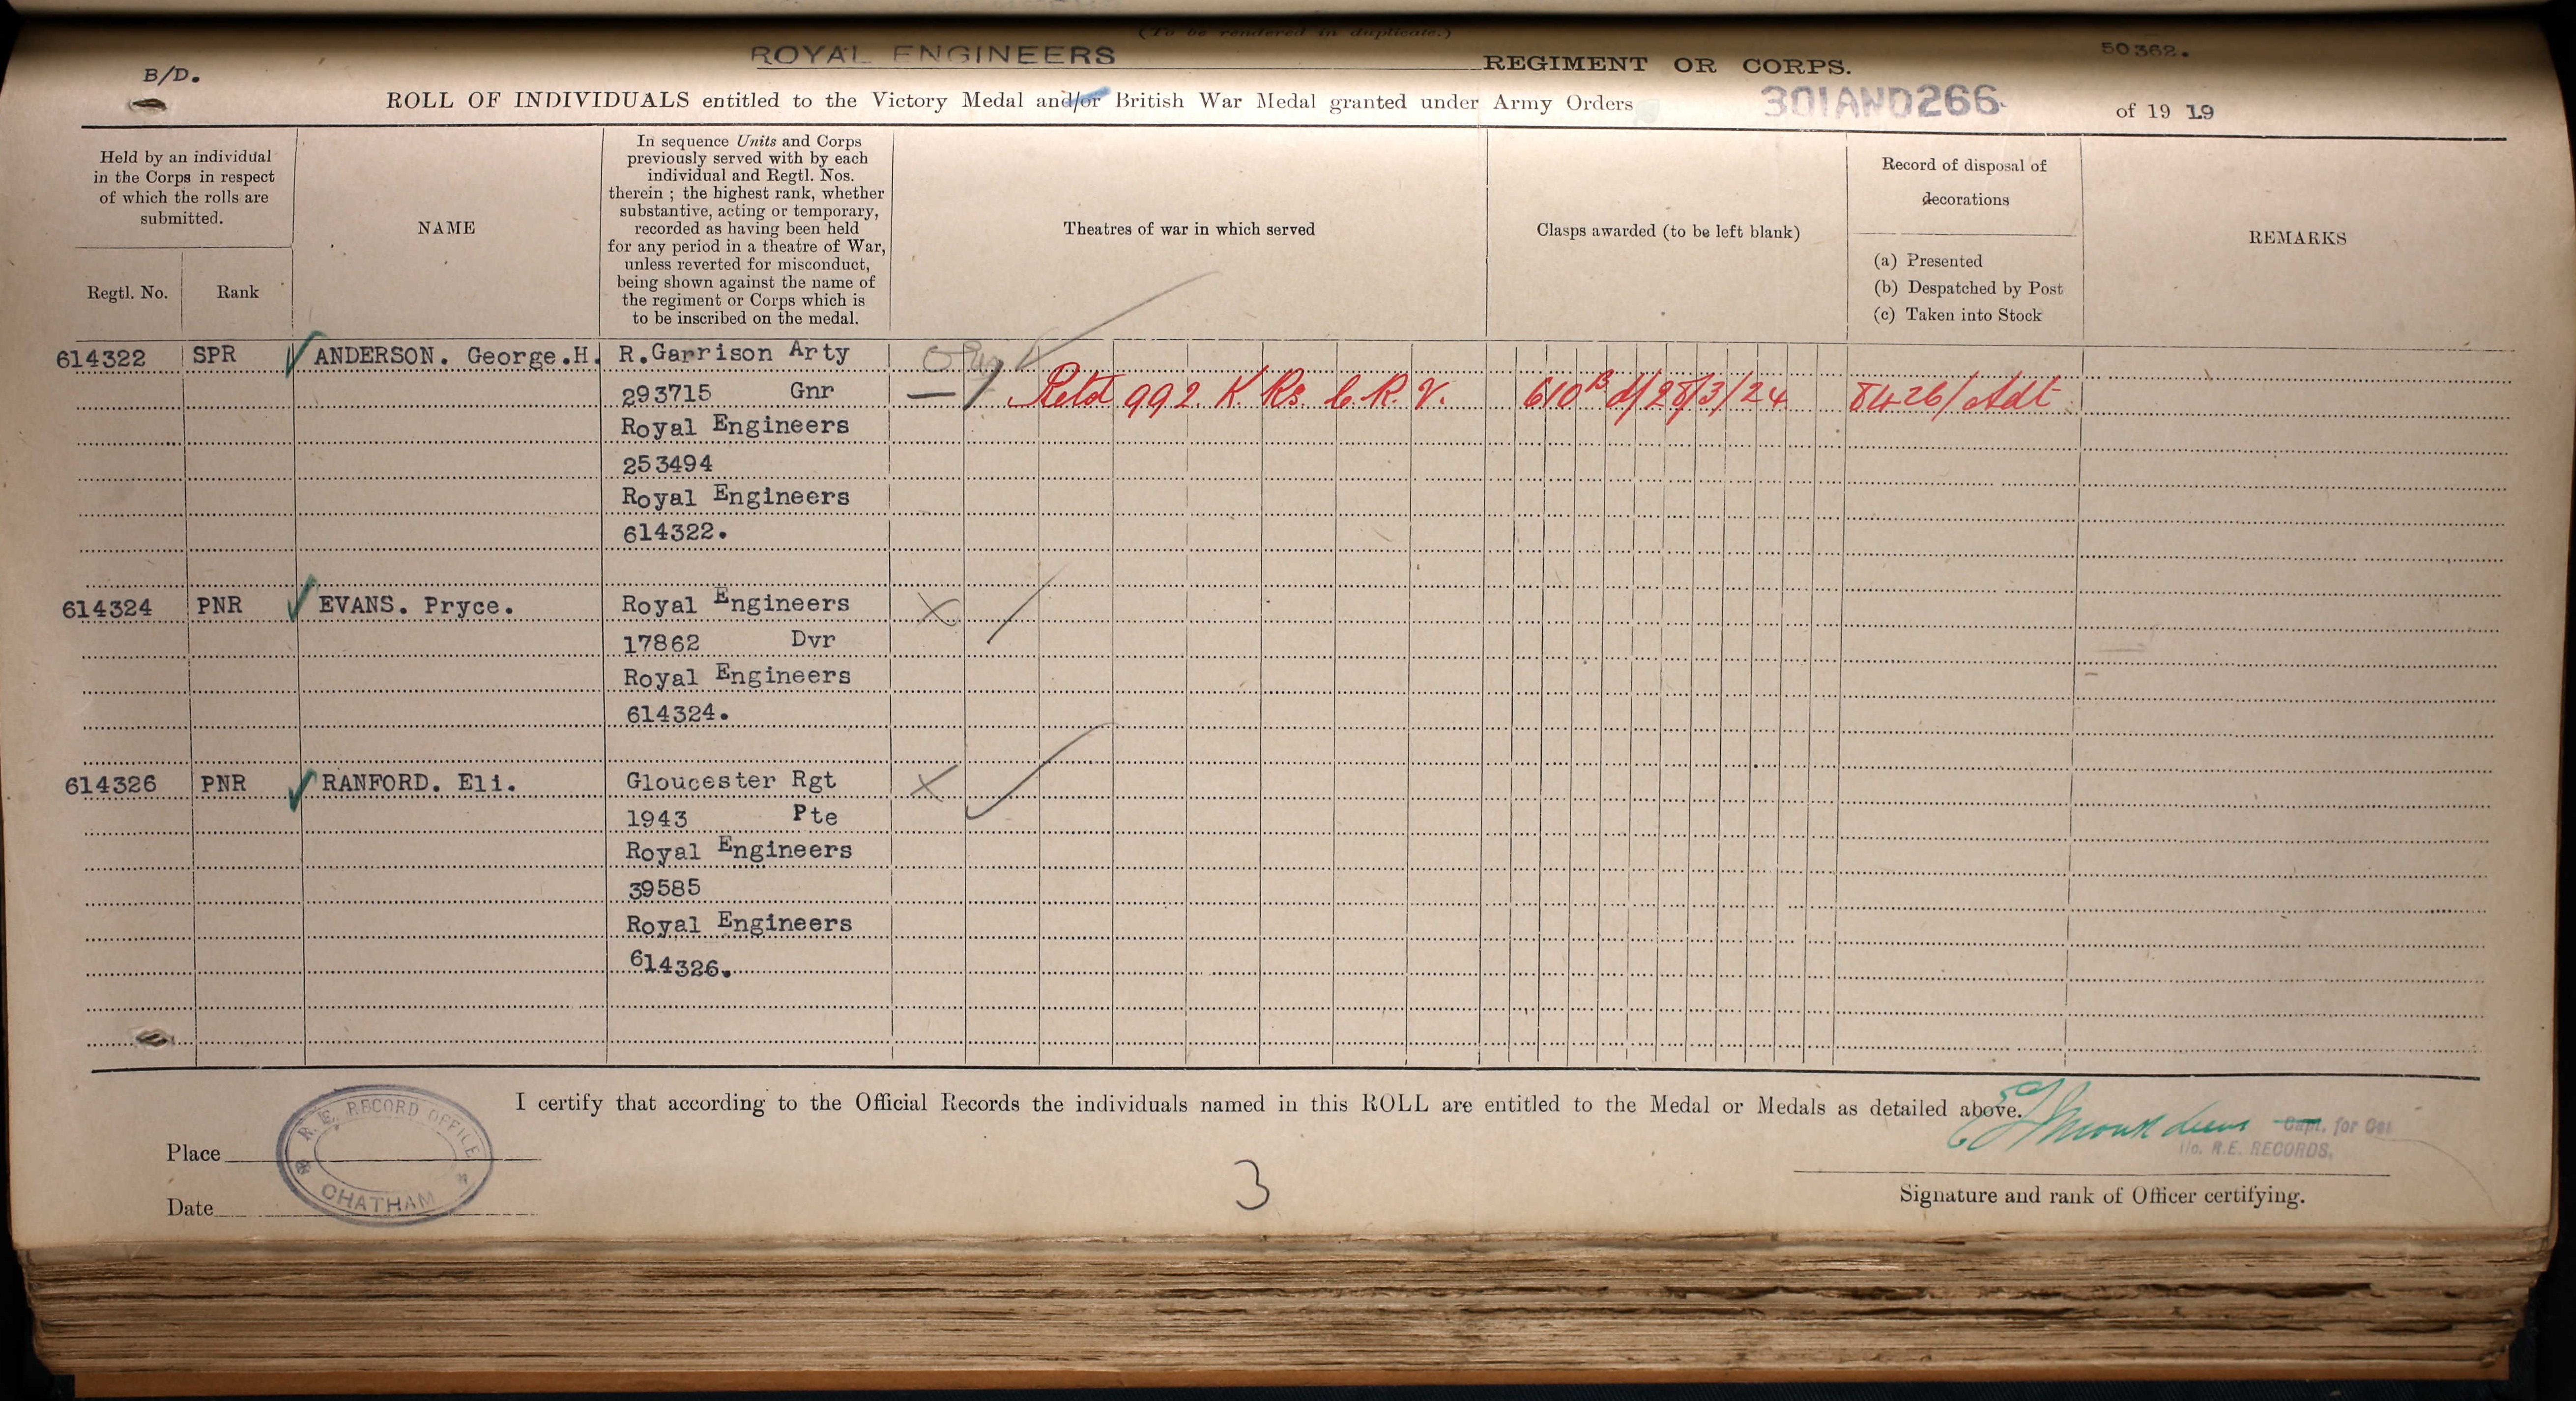 (To be rendered in duplicate.)
ROYAL ENGINEERS REGIMENT OR CORPS.
50362.
B/D.
ROLL OF INDIVIDUALS entitled to the Victory Medal and/or British War Medal granted under Army Orders 301AND266. of 19 19
Held by an individual
in the Corps in respect
of which the rolls are
submitted.
Regtl. No. Rank
NAME
In sequence Units and Corps
previously served with by each
individual and Regtl. Nos.
therein ; the highest rank, whether
substantive, acting or temporary,
recorded as having been held
for any period in a theatre of War,
unless reverted for misconduct,
being shown against the name of
the regiment or Corps which is
to be inscribed on the medal.
Theatres of war in which served
Clasps awarded (to be left blank)
Record of disposal of
decorations
(a) Presented
(b) Despatched by Post
(c) Taken into Stock
REMARKS
614322 SPR ANDERSON. George.H. R.Garrison Arty
293715 Gnr Retd 992 K Rs 610B d/28/3/24 8426/Adt
Royal Engineers
253494
Royal Engineers
614322.
614324 PNR EVANS. Pryce. Royal Engineers
17862 Dvr
Royal Engineers
614324.
614326 PNR RANFORD. Eli. Gloucester Rgt
1943 Pte
Royal Engineers
39585
Royal Engineers
614326.
I certify that according to the Official Records the individuals named in this ROLL are entitled to the Medal or Medals as detailed above.
Capt. for Col
i/c. R.E. RECORDS.
Place
R.E. RECORD OFFICE
CHATHAM
Date
3
Signature and rank of Officer certifying.